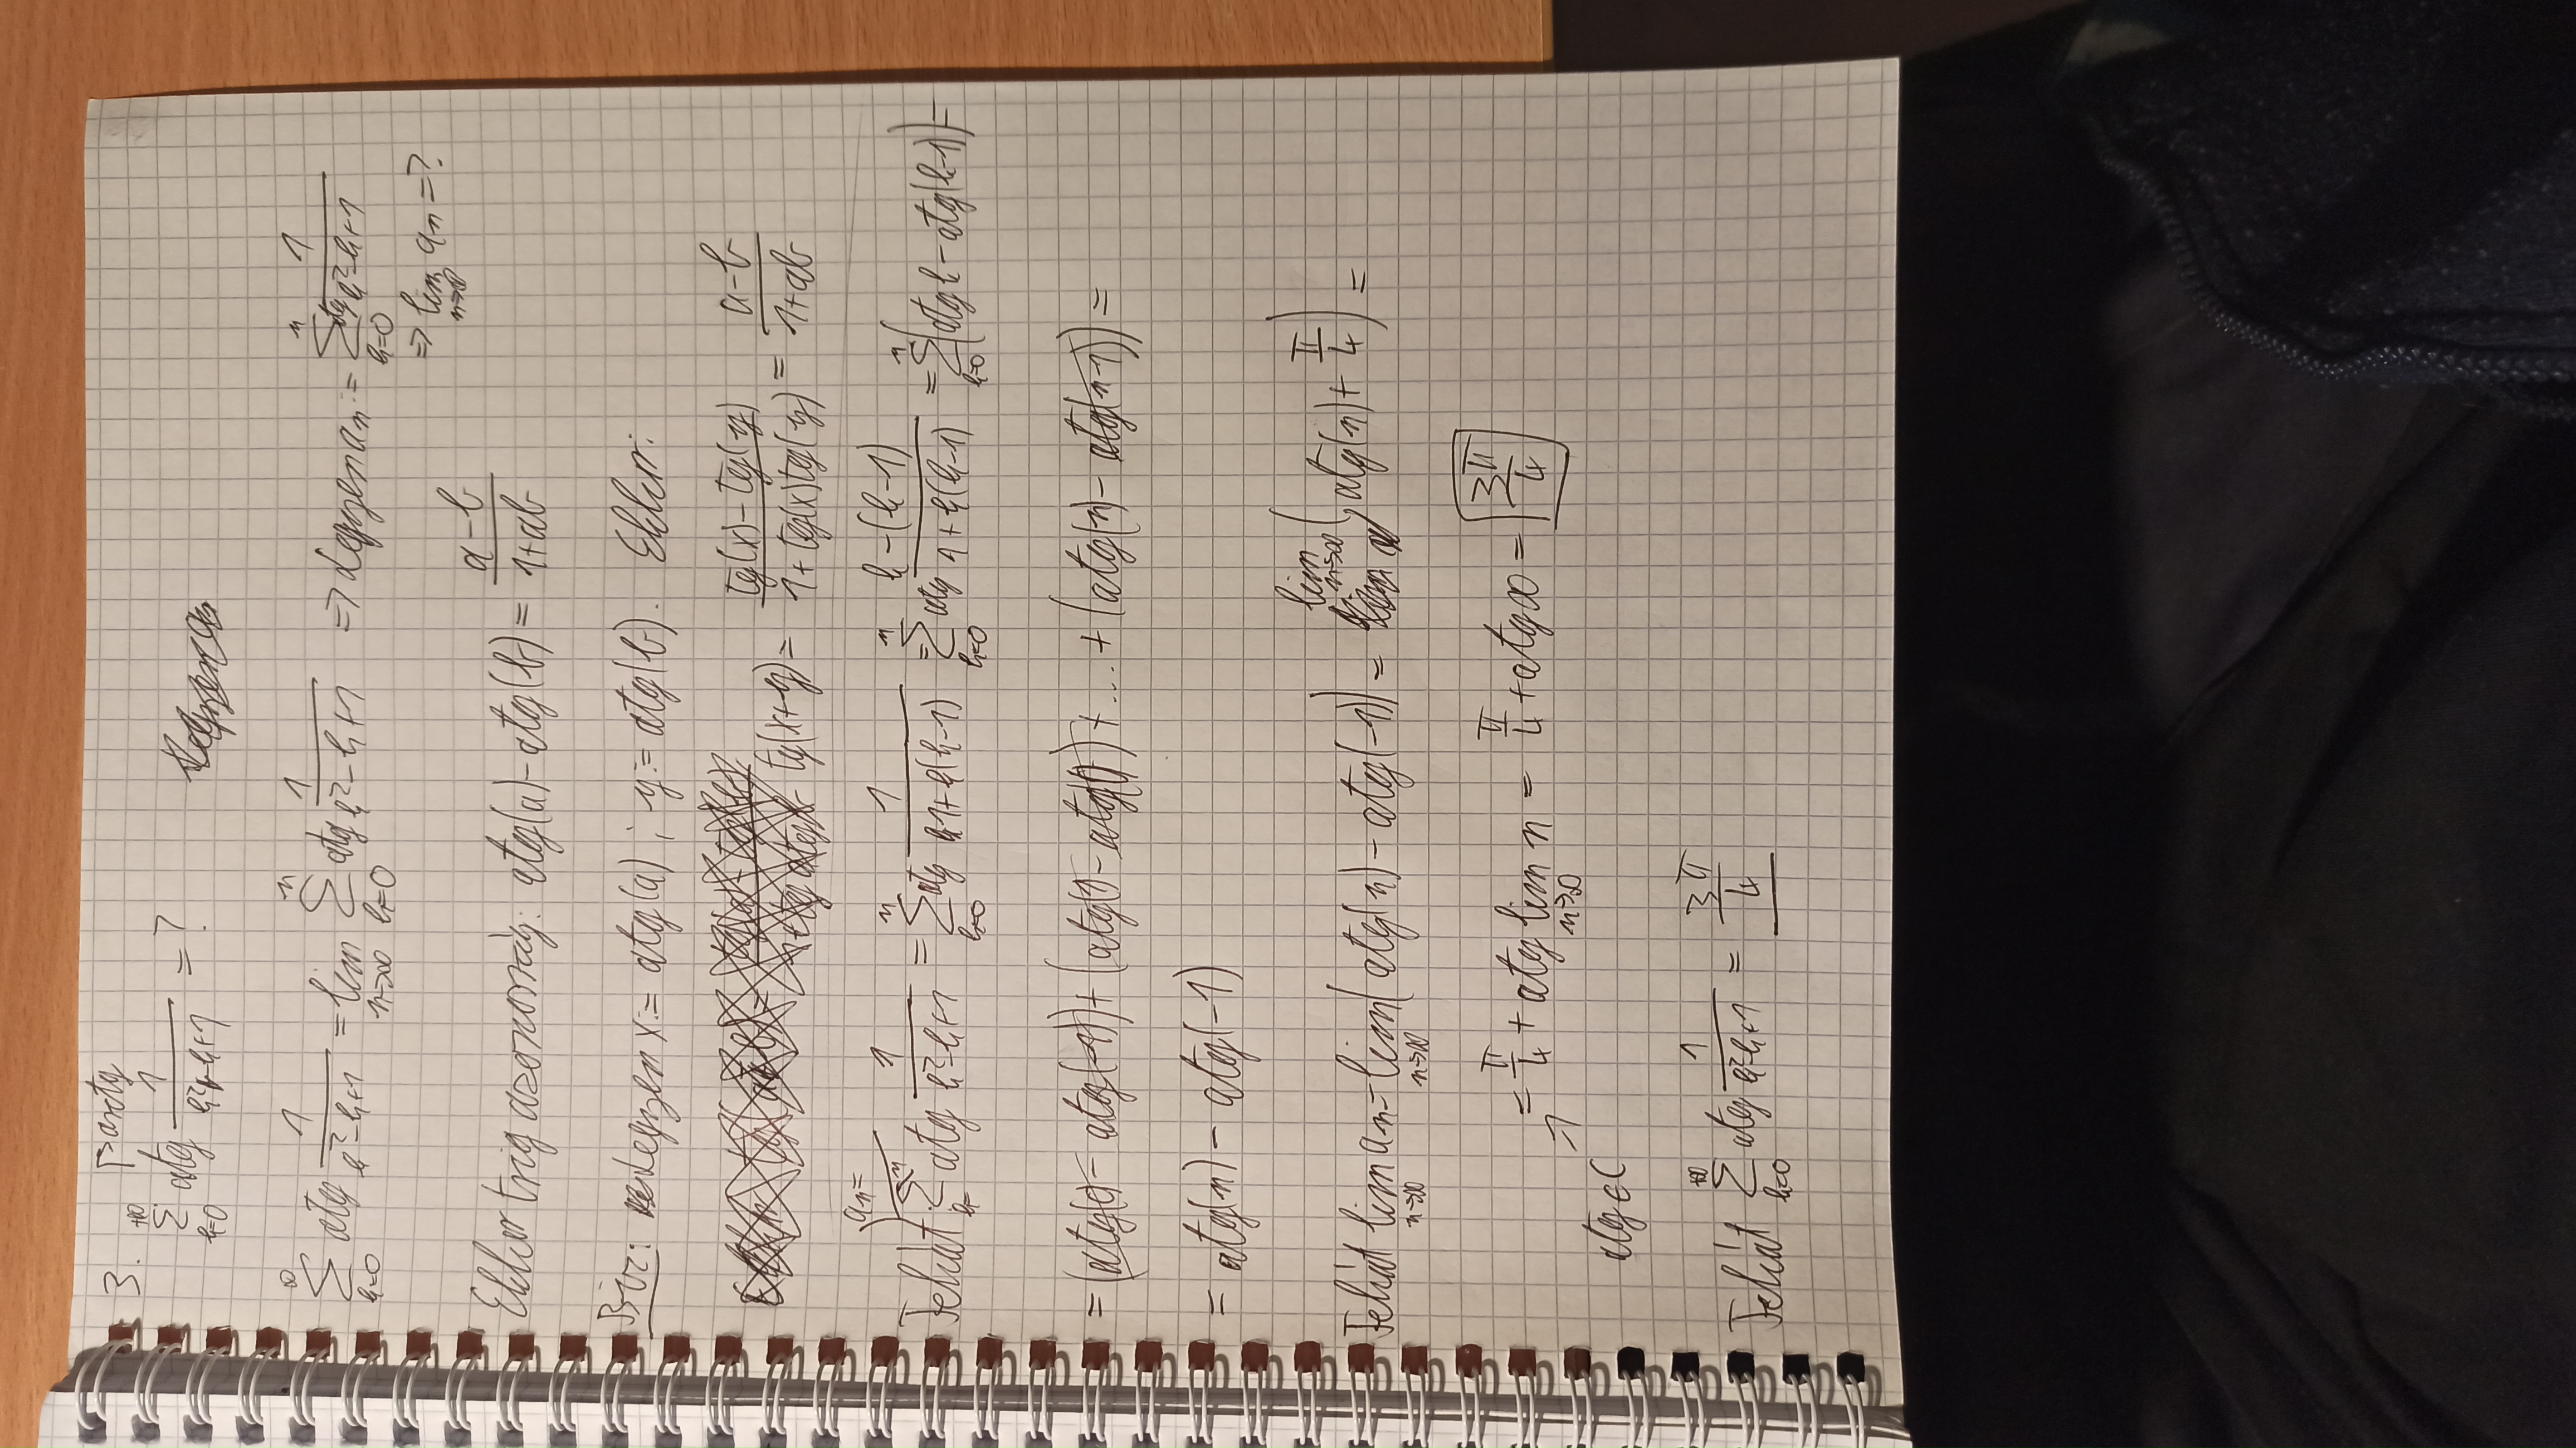 3. ↱ arctg
+∞ Σ k=0 atg 1/(k²-k+1) = ?
∞ Σ k=0 atg 1/(k²-k+1) = lim n→∞ n Σ k=0 atg 1/(k²-k+1) => Legyen an := n Σ k=0 atg 1/(k²-k+1)
=> lim n→∞ an = ?
Ekkor trig azonosság: atg(a)-atg(b) = (a-b)/(1+ab)
Biz: Legyen x := atg(a) ; y := atg(b). Ekkor:
tg(x+y) = (tg(x)-tg(y))/(1+tg(x)tg(y)) = (a-b)/(1+ab)
an=
Tehát n Σ k= atg 1/(k²-k+1) = n Σ k=0 atg 1/(1+k(k-1)) = n Σ k=0 atg (k-(k-1))/(1+k(k-1)) = n Σ k=0 (atg k - atg(k-1)) =
= (atg(0) - atg(-1)) + (atg(1) - atg(0)) + ... + (atg(n) - atg(n-1)) =
= atg(n) - atg(-1)
Tehát lim n→∞ an = lim n→∞ (atg(n) - atg(-1)) = lim n→∞ (atg(n) + π/4) =
= π/4 + atg lim n→∞ n = π/4 + atg ∞ = 3π/4
atg ∈ C
Tehát +∞ Σ k=0 atg 1/(k²-k+1) = 3π/4